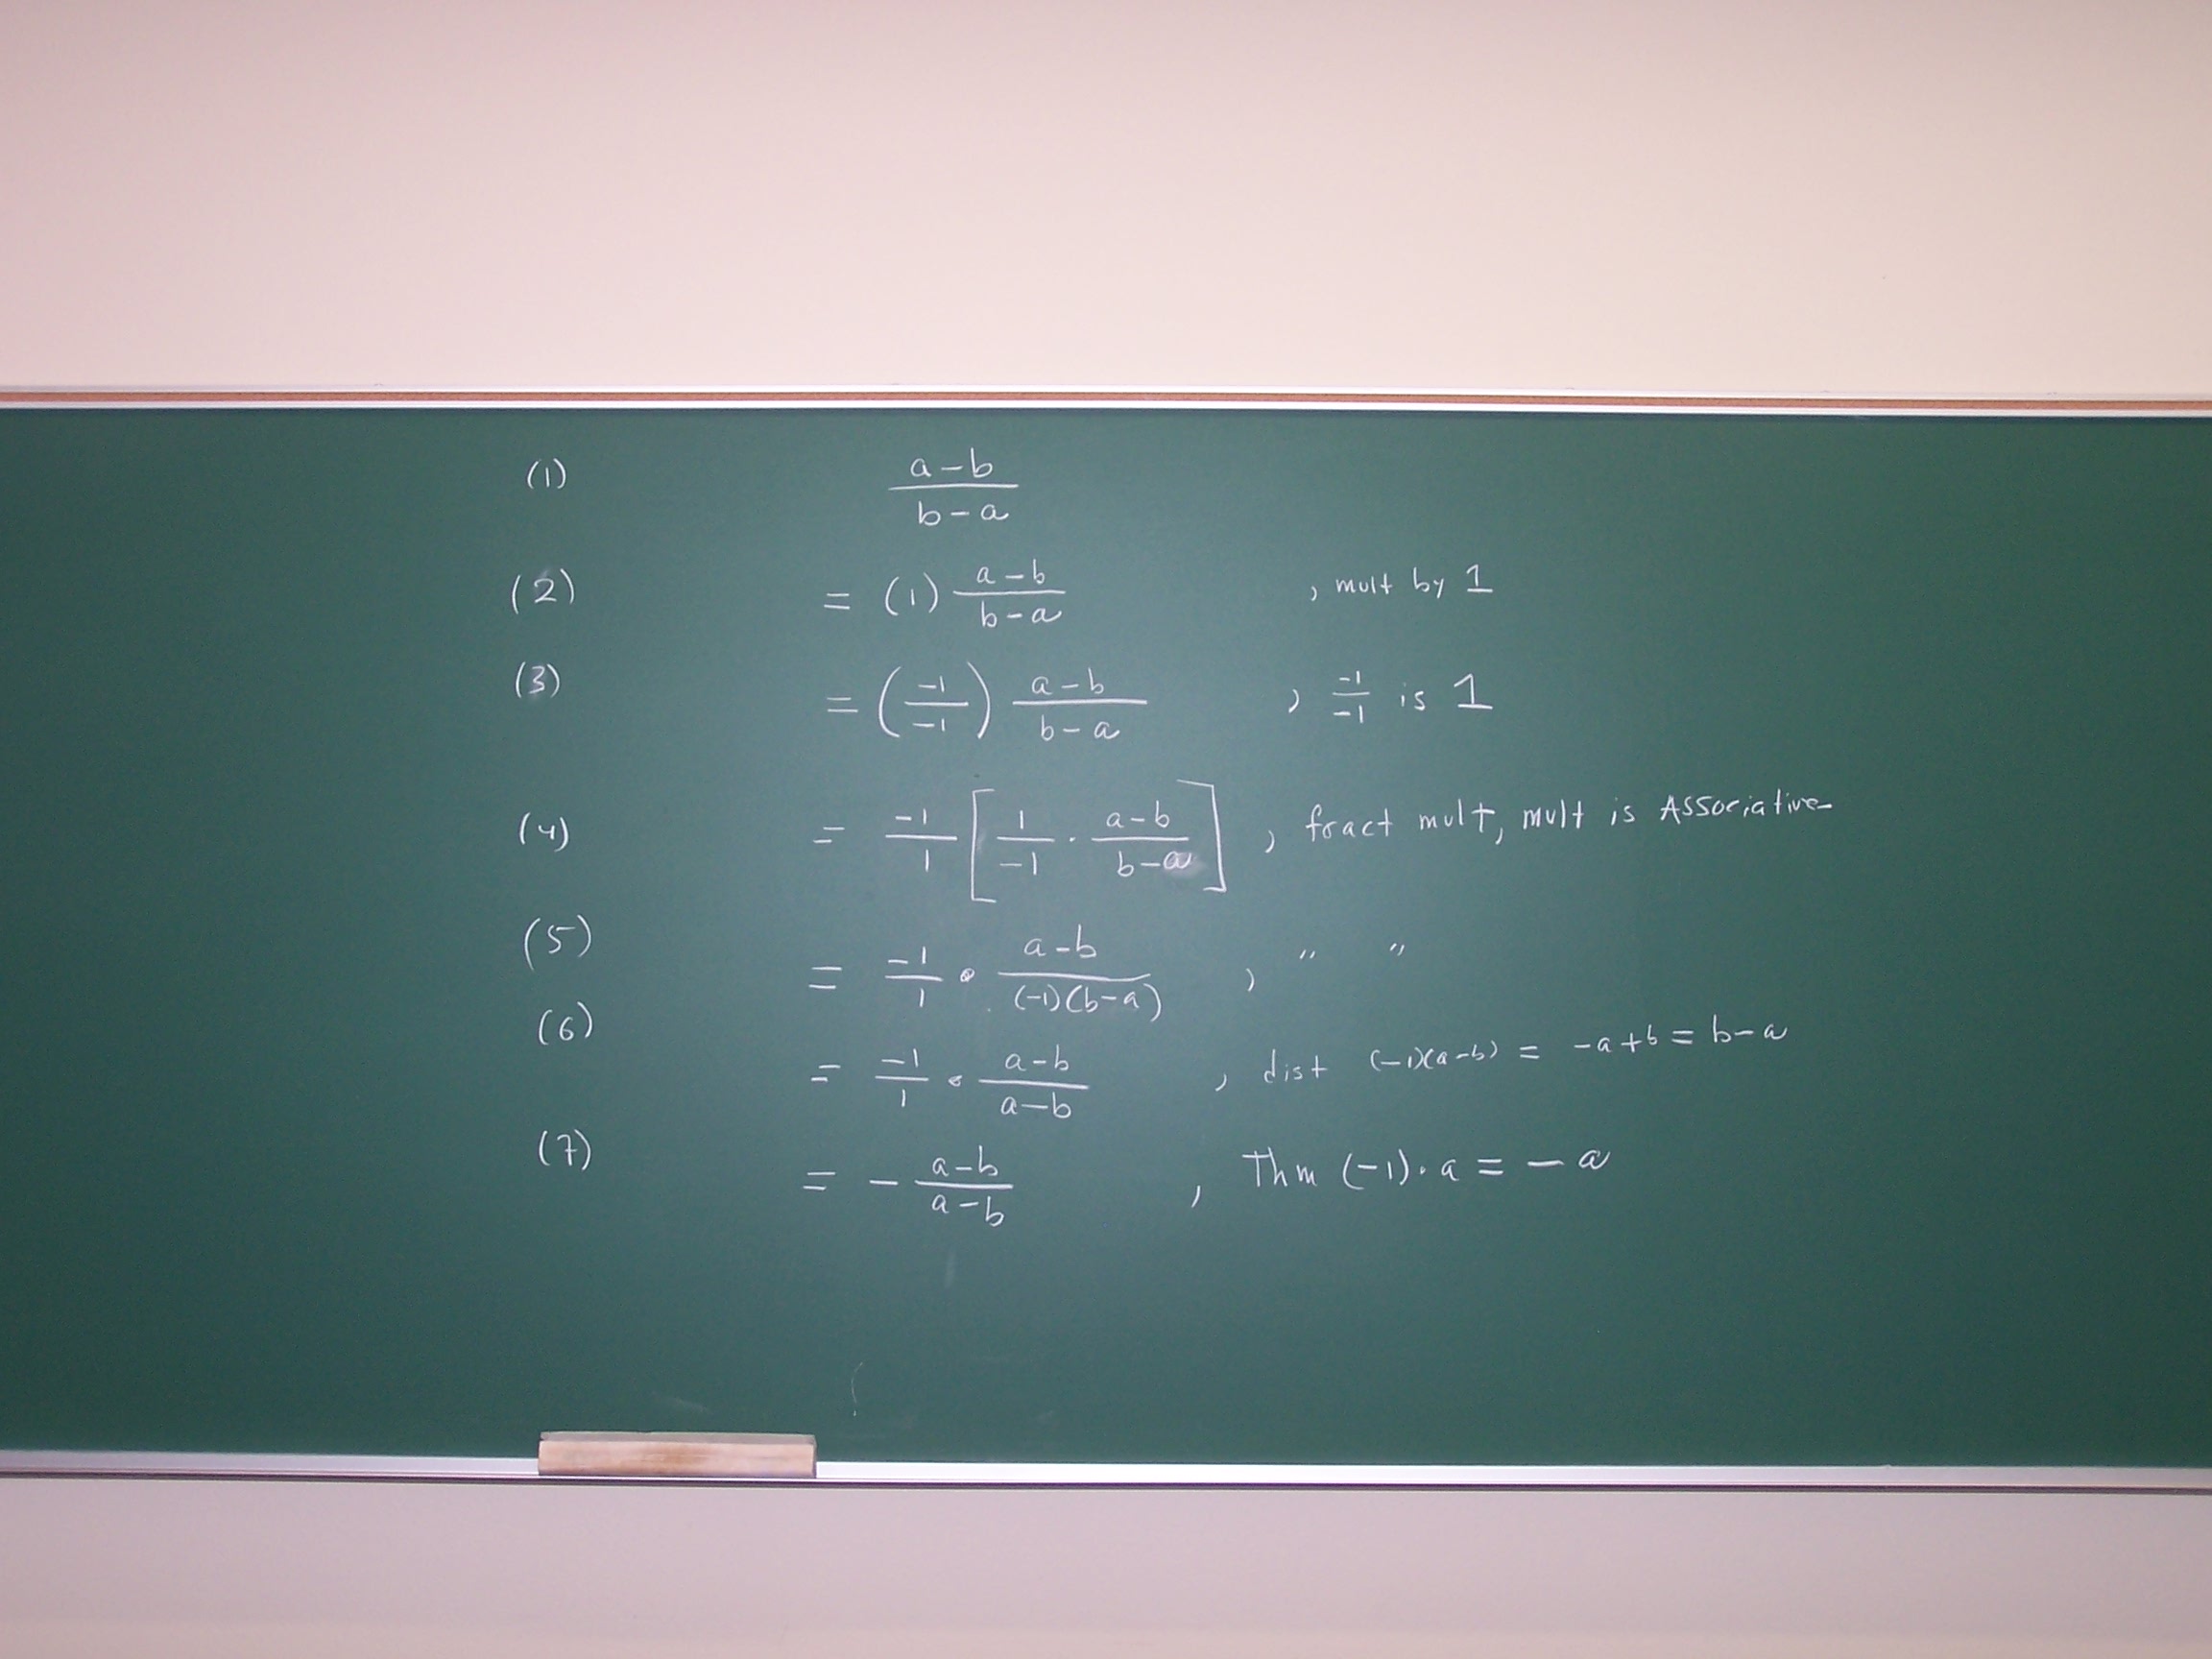 (1) \frac{a-b}{b-a}
(2) = (1) \frac{a-b}{b-a} , mult by 1
(3) = \left(\frac{-1}{-1}\right) \frac{a-b}{b-a} , \frac{-1}{-1} is 1
(4) = \frac{-1}{1} \left[\frac{1}{-1} \cdot \frac{a-b}{b-a}\right] , fract mult, mult is Associative
(5) = \frac{-1}{1} \cdot \frac{a-b}{(-1)(b-a)} , " "
(6) = \frac{-1}{1} \cdot \frac{a-b}{a-b} , dist (-1)(a-b) = -a+b = b-a
(7) = - \frac{a-b}{a-b} , Thm (-1)·a = -a